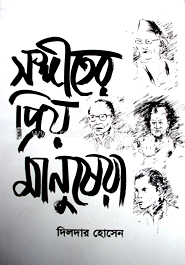 সঙ্গীতের
প্রিয়
মানুষেরা
দিলদার হোসেন